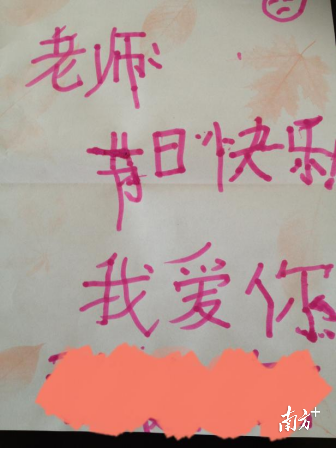 老师
节日快乐!
我爱你
南方+